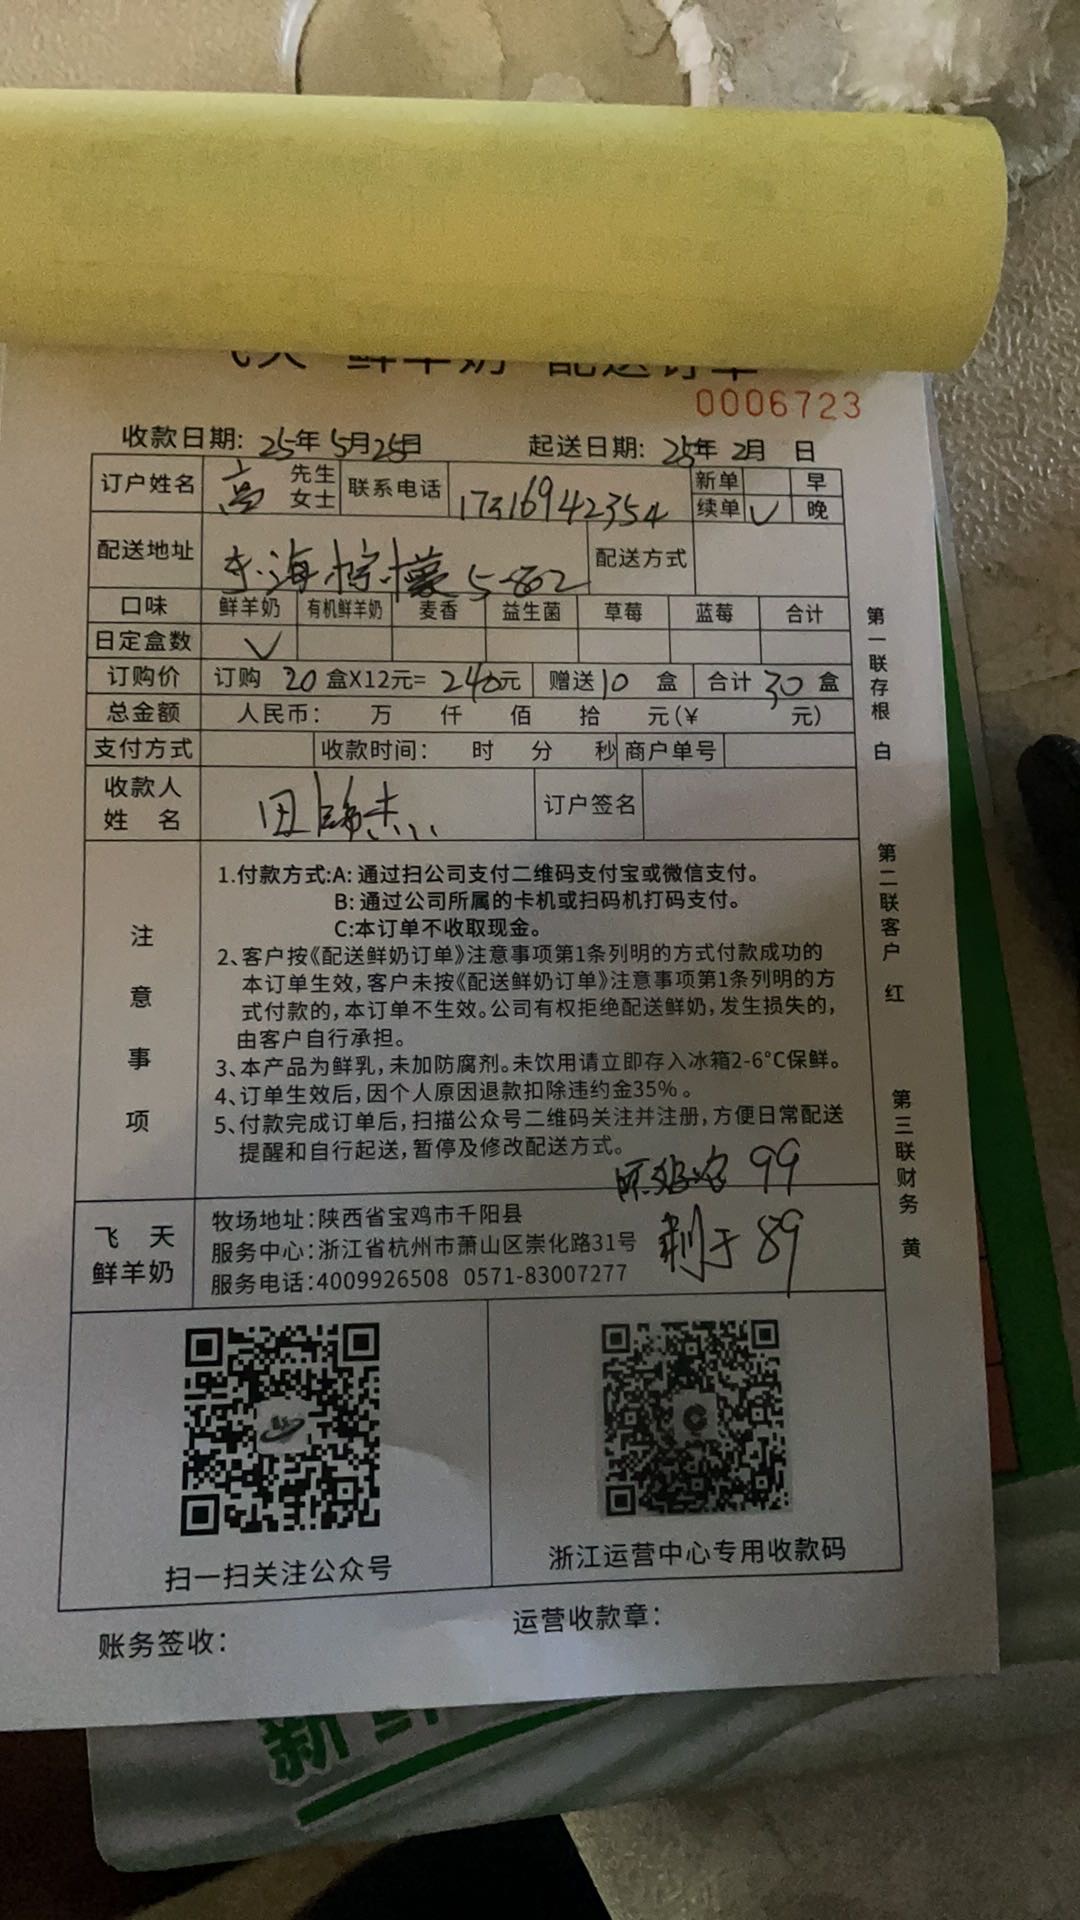 飞天 鲜羊奶 配送订单
0006723
收款日期: 25年5月25日 起送日期: 25年2月 日
订户姓名 高 先生 女士 联系电话 17316942354 新单 早
续单 √ 晚
配送地址 东海柠檬5-802 配送方式
口味 鲜羊奶 有机鲜羊奶 麦香 益生菌 草莓 蓝莓 合计
日定盒数 √
订购价 订购 20 盒X12元= 240元 赠送 10 盒 合计 30 盒
总金额 人民币: 万 仟 佰 拾 元(¥ 元)
支付方式 收款时间: 时 分 秒 商户单号
收款人
姓 名 田 订户签名
注意事项
1.付款方式:A: 通过扫公司支付二维码支付宝或微信支付。
B: 通过公司所属的卡机或扫码机打码支付。
C:本订单不收取现金。
2、客户按《配送鲜奶订单》注意事项第1条列明的方式付款成功的
本订单生效, 客户未按《配送鲜奶订单》注意事项第1条列明的方
式付款的, 本订单不生效。公司有权拒绝配送鲜奶, 发生损失的,
由客户自行承担。
3、本产品为鲜乳, 未加防腐剂。未饮用请立即存入冰箱2-6°C保鲜。
4、订单生效后, 因个人原因退款扣除违约金35%。
5、付款完成订单后, 扫描公众号二维码关注并注册, 方便日常配送
提醒和自行起送, 暂停及修改配送方式。
99
剩于 89
飞 天
鲜羊奶
牧场地址:陕西省宝鸡市千阳县
服务中心:浙江省杭州市萧山区崇化路31号
服务电话:4009926508 0571-83007277
扫一扫关注公众号 浙江运营中心专用收款码
账务签收: 运营收款章:
第一联存根 白
第二联客户 红
第三联财务 黄
新鲜